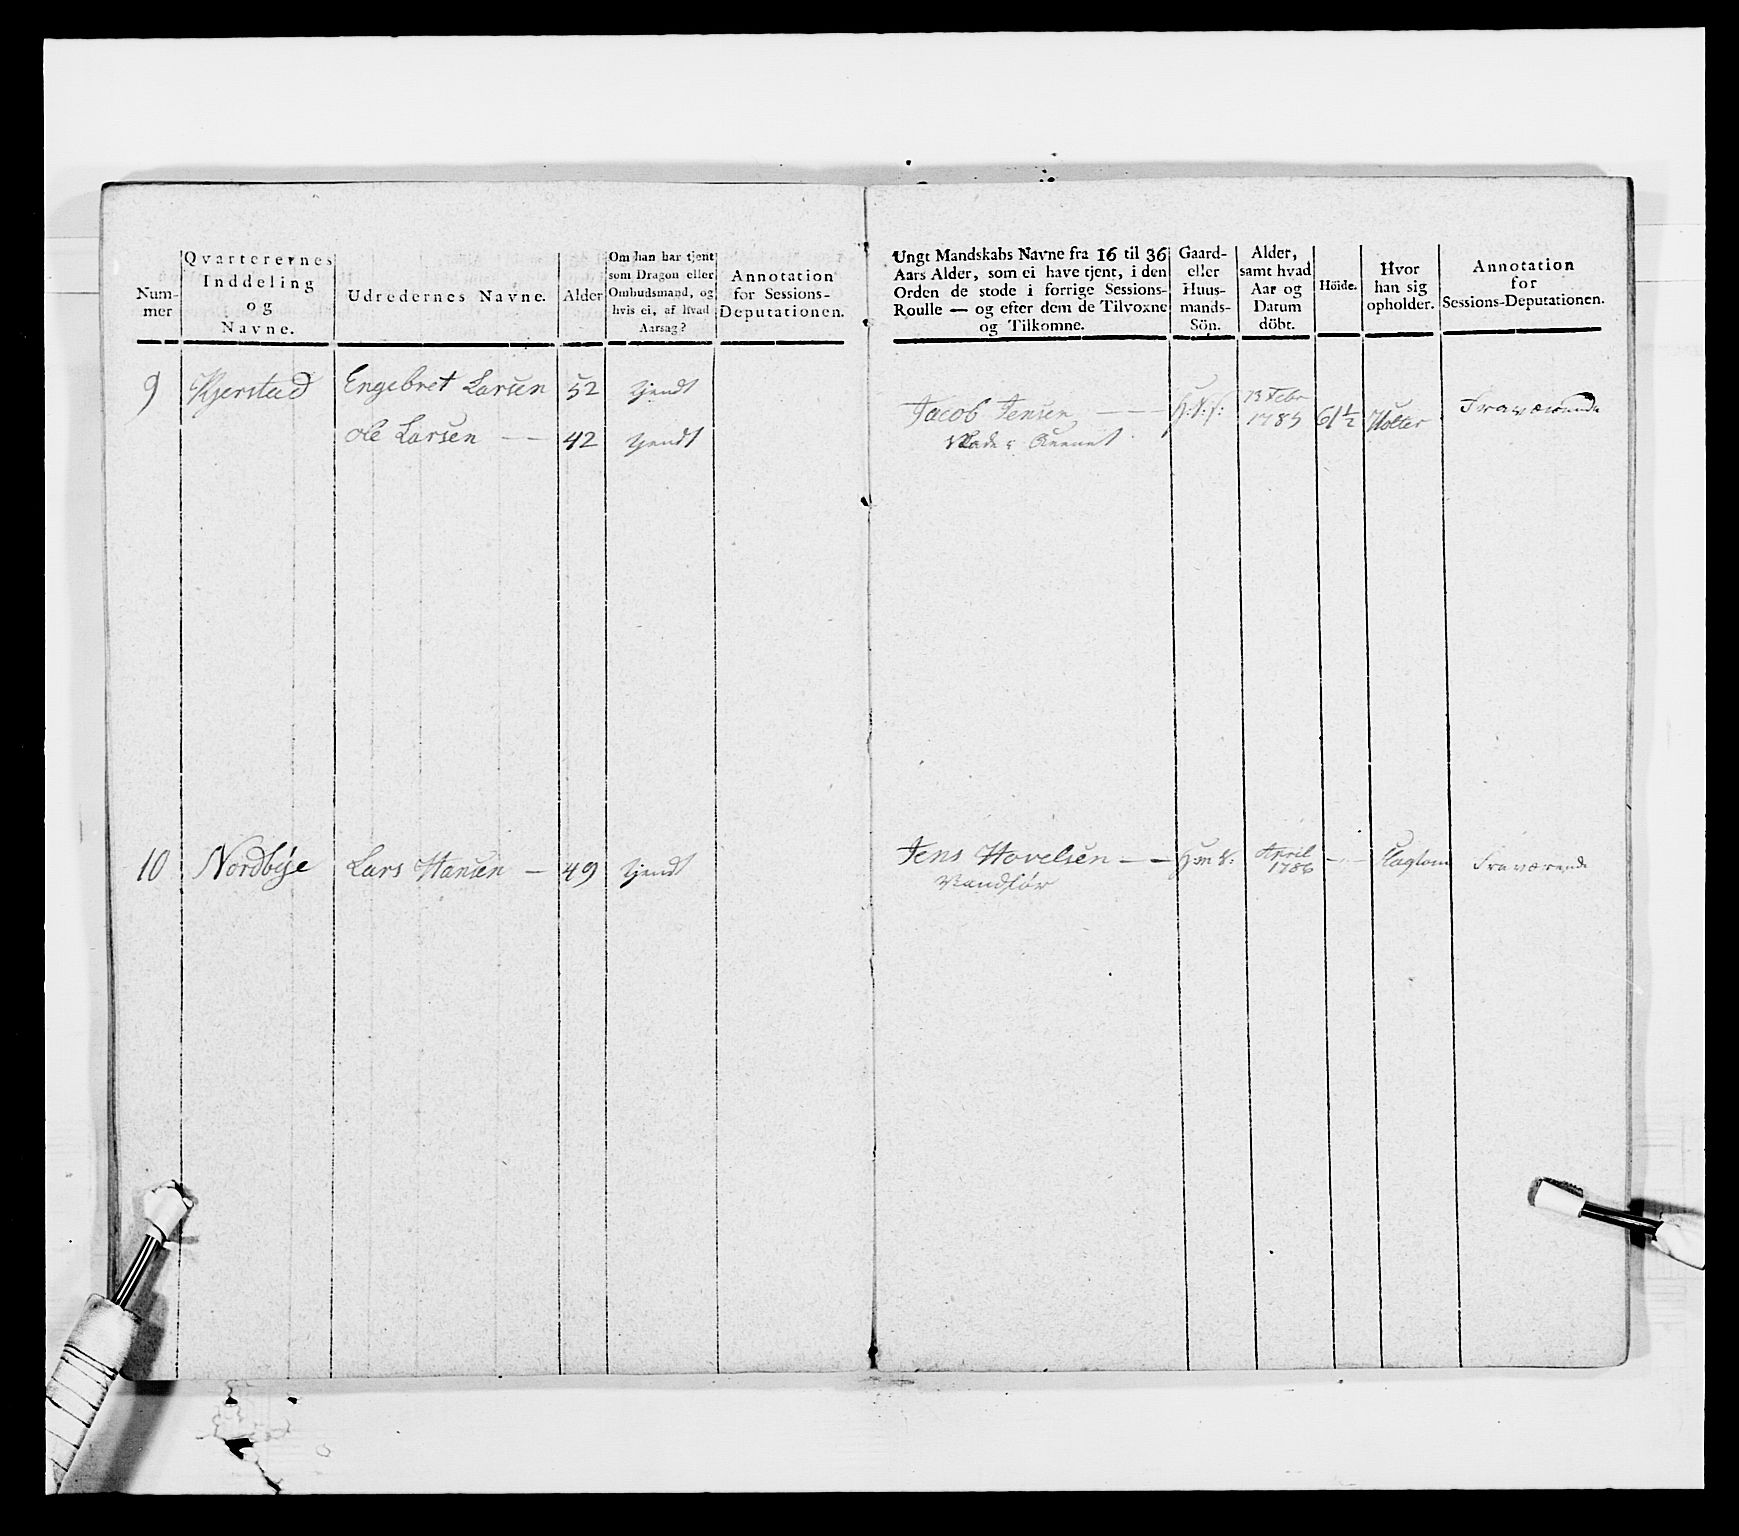 Num-
mer
Qvarterernes
Inddeling
og
Navne.
Udredernes Navne.
Alder
Om han har tjent
som Dragon eller
Ombudsmand, og
hvis ei, af hvad
Aarsag?
Annotation
for Sessions-
Deputationen.
9 Kjerstad Engebret Larsen 52 tjendt
Ole Larsen — — 42 tjendt
10 Nordbye Lars Hansen — 49 tjendt
Ungt Mandskabs Navne fra 16 til 36
Aars Alder, som ei have tjent, i den
Orden de stode i forrige Sessions-
Roulle — og efter dem de Tilvoxne
og Tilkomne.
Gaard-
eller
Huus-
mands-
Sön.
Alder,
samt hvad
Aar og
Datum
döbt.
Höide.
Hvor
han sig
opholder.
Annotation
for
Sessions-Deputationen.
13 Febr
Jacob Jensen — — — 1785 61½ Holter Fraværende
Jens Hovelsen — — April 1786 — — Fraværende
Vandför